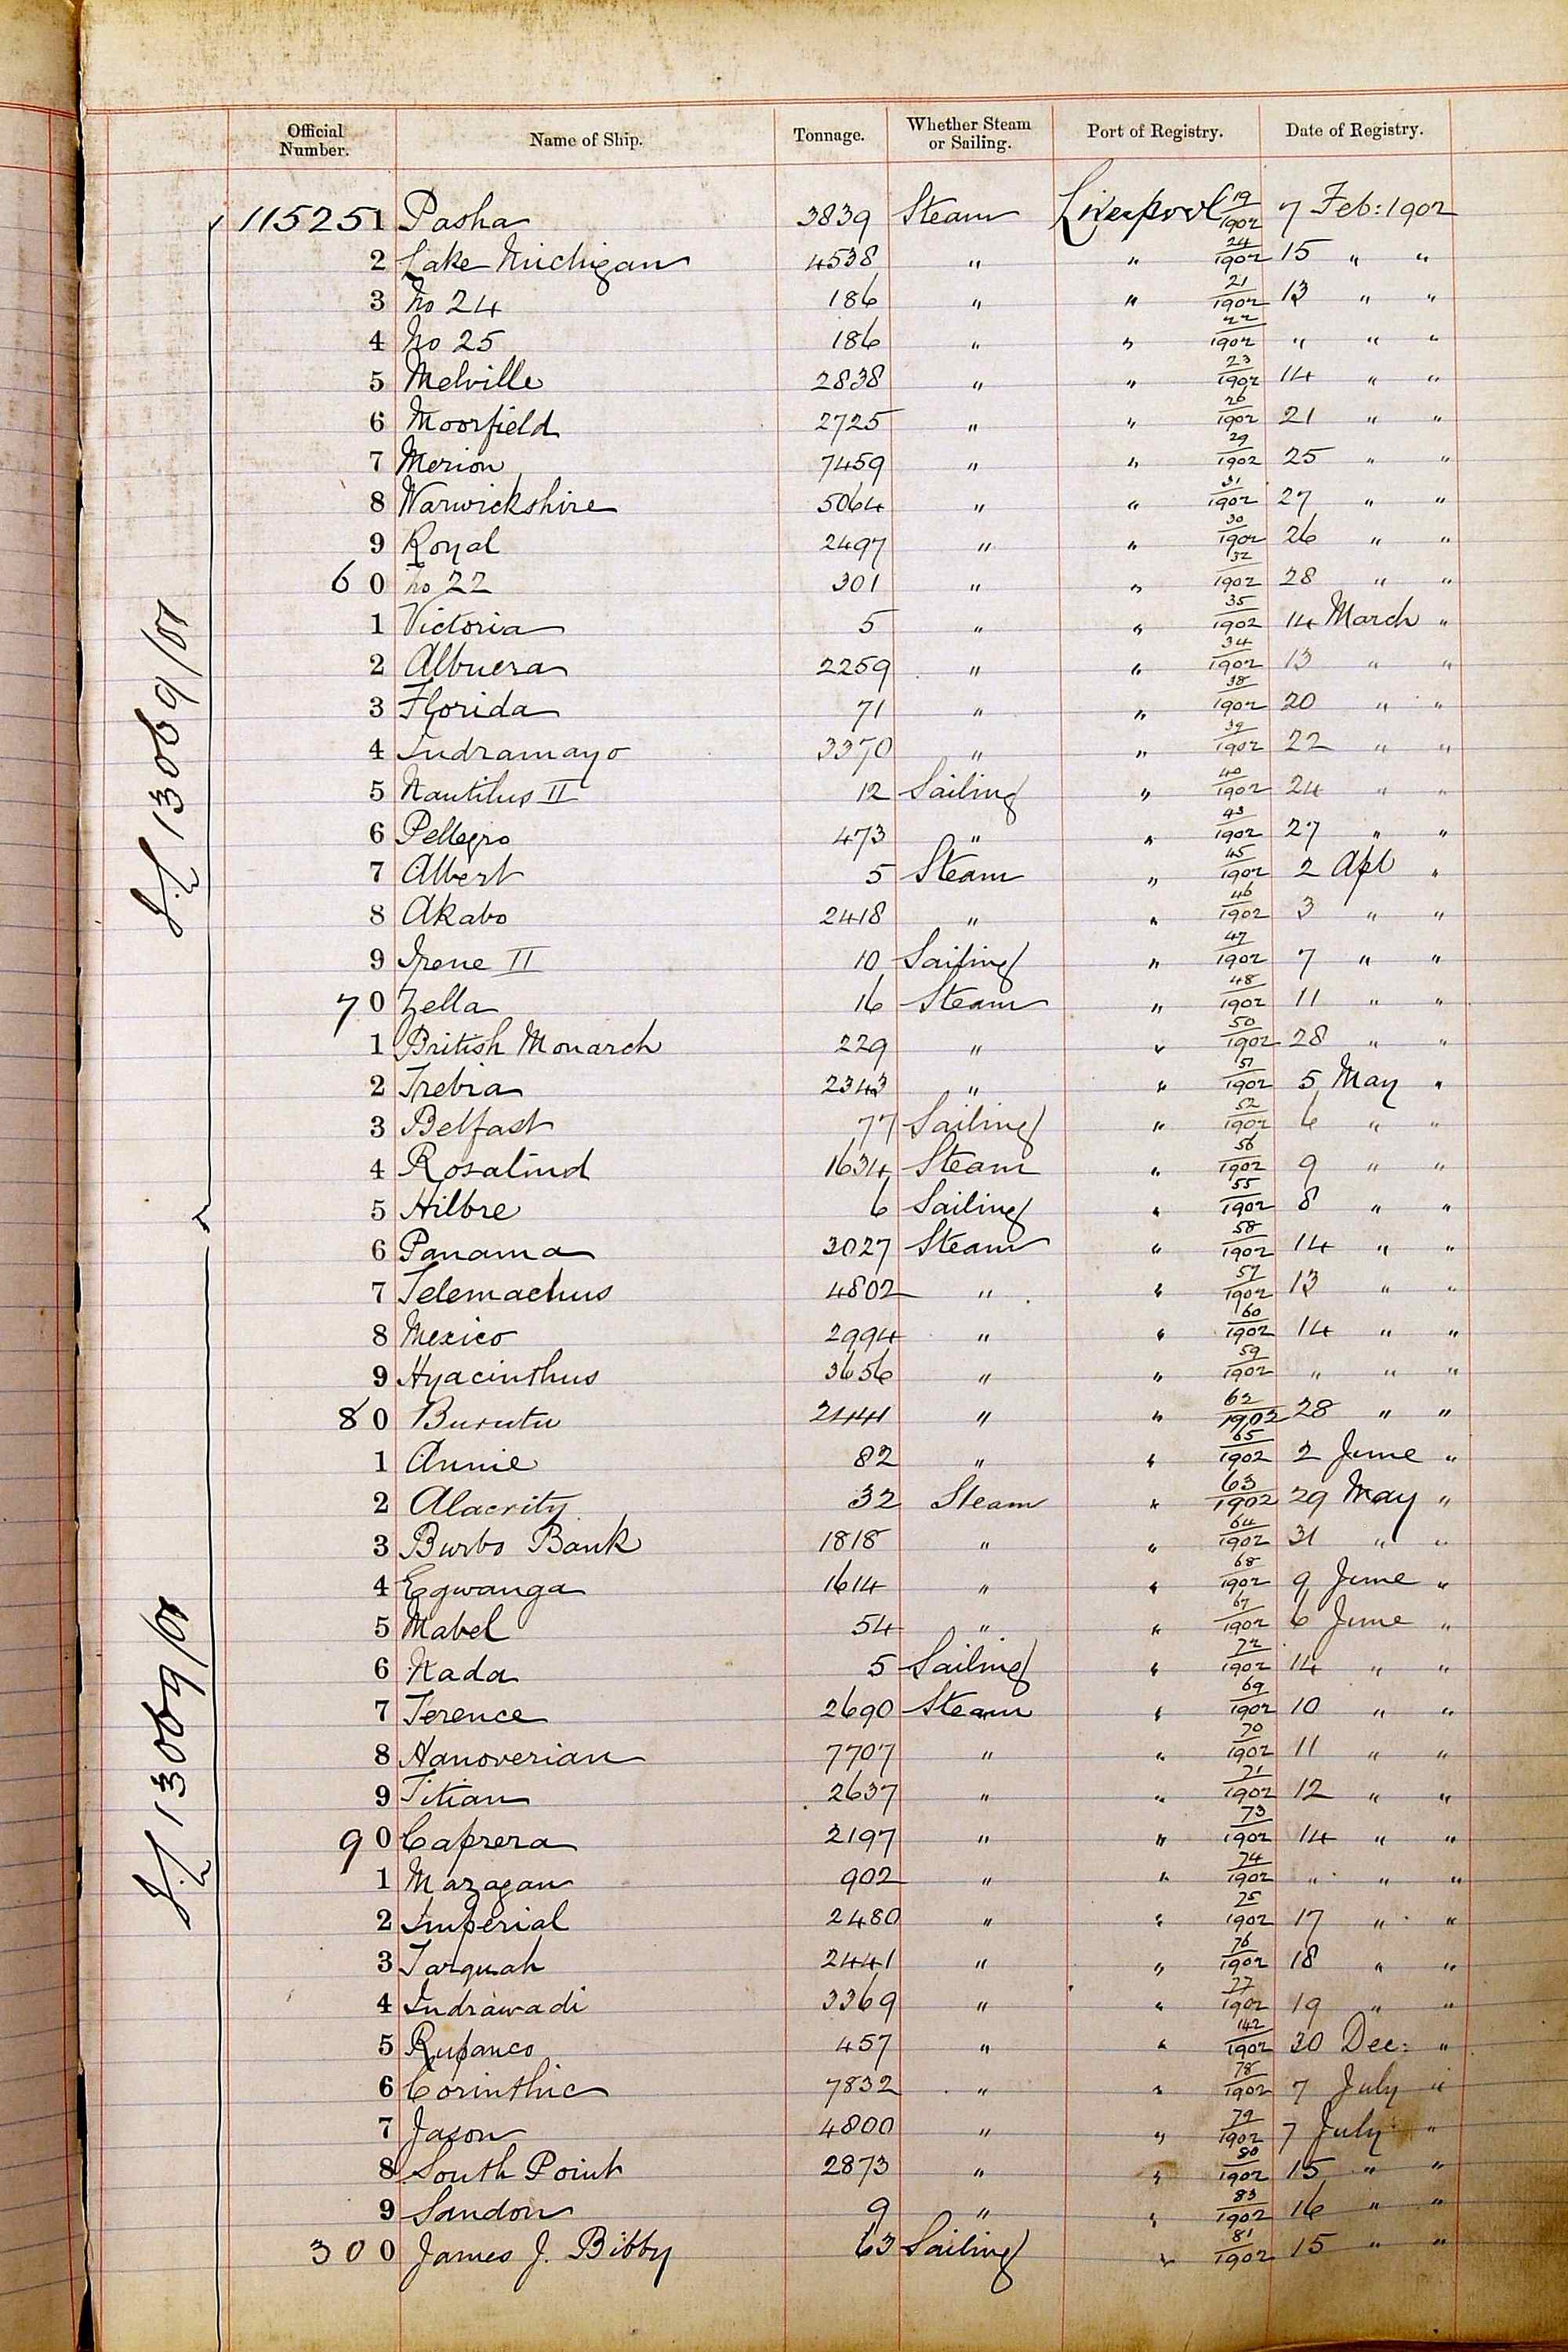 Official Number. Name of Ship. Tonnage. Whether Steam or Sailing. Port of Registry. Date of Registry.
115251 Pasha 3839 Steam Liverpool 19/1902 7 Feb: 1902
2 Lake Michigan 4538 " " 24/1902 15 " "
3 No 24 186 " " 21/1902 13 " "
4 No 25 186 " " 22/1902 " " "
5 Melville 2838 " " 23/1902 14 " "
6 Moorfield 2725 " " 26/1902 21 " "
7 Merion 7459 " " 29/1902 25 " "
8 Warwickshire 5064 " " 31/1902 27 " "
9 Royal 2497 " " 30/1902 26 " "
60 No 22 301 " " 32/1902 28 " "
1 Victoria 5 " " 35/1902 14 March "
2 Albuera 2259 " " 34/1902 13 " "
3 Florida 71 " " 38/1902 20 " "
4 Indramayo 3370 " " 39/1902 22 " "
5 Nautilus II 12 Sailing " 40/1902 24 " "
6 Pellegro 473 " " 43/1902 27 " "
7 Albert 5 Steam " 45/1902 2 Apl "
8 Akabo 2418 " " 46/1902 3 " "
9 Irene II 10 Sailing " 47/1902 7 " "
70 Zella 16 Steam " 48/1902 11 " "
1 British Monarch 229 " " 50/1902 28 " "
2 Trebia 2343 " " 51/1902 5 May "
3 Belfast 77 Sailing " 52/1902 6 " "
4 Rosalind 1634 Steam " 56/1902 9 " "
5 Hilbre 6 Sailing " 55/1902 8 " "
6 Panama 3027 Steam " 58/1902 14 " "
7 Telemachus 4802 " " 57/1902 13 " "
8 Mexico 2994 " " 60/1902 14 " "
9 Hyacinthus 3656 " " 59/1902 " " "
80 Burutu 2441 " " 62/1902 28 " "
1 Annie 82 " " 65/1902 2 June "
2 Alacrity 32 Steam " 63/1902 29 May "
3 Burbo Bank 1818 " " 64/1902 31 " "
4 Egwanga 1614 " " 68/1902 9 June "
5 Mabel 54 " " 67/1902 6 June "
6 Nada 5 Sailing " 72/1902 14 " "
7 Terence 2690 Steam " 69/1902 10 " "
8 Hanoverian 7707 " " 70/1902 11 " "
9 Titian 2637 " " 71/1902 12 " "
90 Caprera 2197 " " 73/1902 14 " "
1 Mazagan 902 " " 74/1902 " " "
2 Imperial 2480 " " 75/1902 17 " "
3 Tarquah 2441 " " 76/1902 18 " "
4 Indrawadi 3369 " " 77/1902 19 " "
5 Rupanco 457 " " 142/1902 30 Dec: "
6 Corinthic 7832 " " 78/1902 7 July "
7 Jason 4800 " " 79/1902 7 July "
8 South Point 2873 " " 80/1902 15 " "
9 Sandon 9 " " 83/1902 16 " "
300 James J. Bibby 63 Sailing " 81/1902 15 " "
13069/01
13069/01